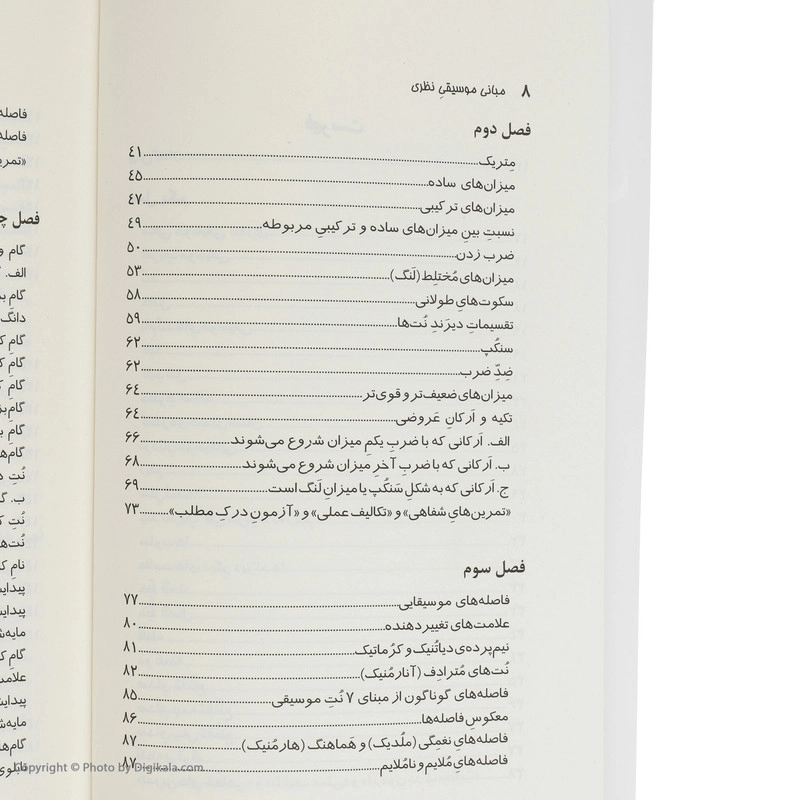 ۸ مبانی موسیقیِ نظری
فصل دوم
مِتریک ۴۱
میزان‌های ساده ۴۵
میزان‌های ترکیبی ۴۷
نسبتِ بینِ میزان‌های ساده و ترکیبیِ مربوطه ۴۹
ضرب زدن ۵۰
میزان‌های مُختلِط (لَنگ) ۵۳
سکوت‌هایِ طولانی ۵۸
تقسیماتِ دیرَندِ نُت‌ها ۵۹
سنکُپ ۶۲
ضِدِّ ضرب ۶۲
میزان‌های ضعیف‌تر و قوی‌تر ۶۴
تکیه و اَرکانِ عَروضی ۶۴
الف. اَرکانی که با ضربِ یکمِ میزان شروع می‌شوند ۶۶
ب. اَرکانی که با ضربِ آخرِ میزان شروع می‌شوند ۶۸
ج. اَرکانی که به شکلِ سَنکُپ یا میزانِ لَنگ است ۶۹
«تمرین‌هایِ شفاهی» و «تکالیف عملی» و «آزمونِ درکِ مطلب» ۷۳
فصل سوم
فاصله‌های موسیقایی ۷۷
علامت‌های تغییردهنده ۸۰
نیم‌پرده‌ی دیاتُنیک و کرُماتیک ۸۱
نُت‌های مُترادِف (آنارمُنیک) ۸۲
فاصله‌های گوناگون از مبنای ۷ نُتِ موسیقی ۸۵
معکوسِ فاصله‌ها ۸۶
فاصله‌هایِ نغمِگی (ملُدیک) و هَماهنگ (هارمُنیک) ۸۷
فاصله‌هایِ مُلایم و نامُلایم ۸۷
فصل
گام
الف.
گام
دانگ
گامِ
گامِ
گامِ
گامِ
نُتِ
ب.
نُتِ
نُت‌ها
نامِ
گامِ
Copyright © Photo by Digikala.com